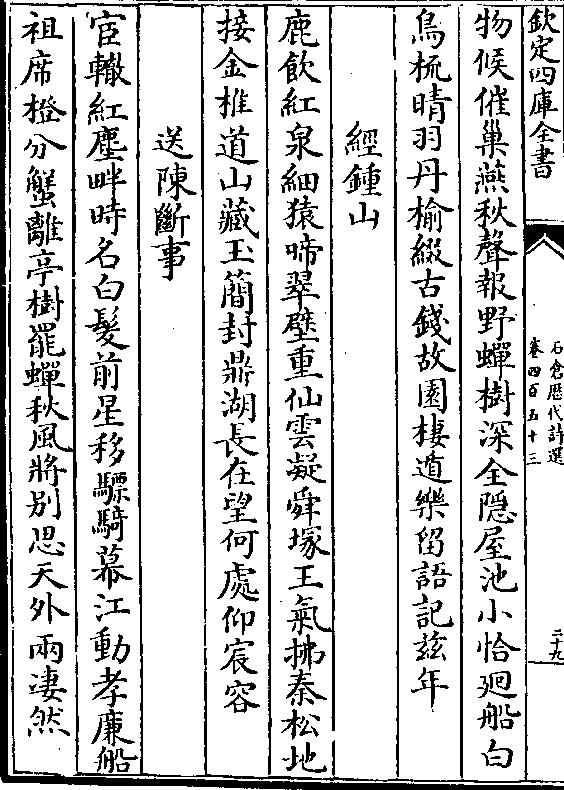 欽定四庫全書
石倉歴代詩選
卷四百五十三
三十九
物候催巢燕秋聲報野蟬樹深全隠屋池小恰廻船白
鳥梳晴羽丹榆綴古錢故園棲遁樂留語記兹年
經鍾山
鹿飲紅泉細猿啼翠壁重仙雲凝舜塚王氣拂秦松地
接金椎道山藏玉簡封鼎湖長在望何處仰宸容
送陳斷事
宦轍紅塵畔時名白髮前星移驃騎幕江動孝廉船
祖席橙分蟹離亭樹罷蟬秋風將别思天外兩凄然